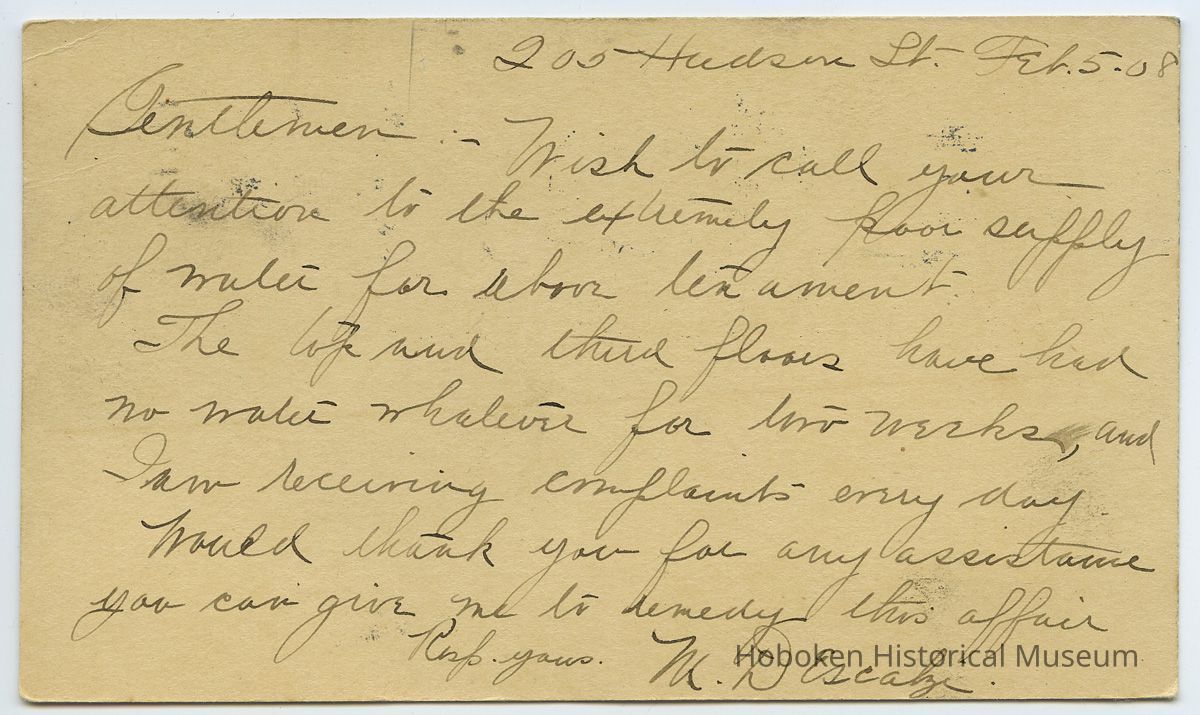 205 Hudson St. Feb. 5. 08
Gentlemen :- Wish to call your
attention to the extremely poor supply
of water for above tenament.
The top and third floors have had
no water whatever for two weeks, and
I am receiving complaints every day
Would thank you for any assistance
you can give me to remedy this affair
Resp. yours. M. D'Ascalze.
Hoboken Historical Museum